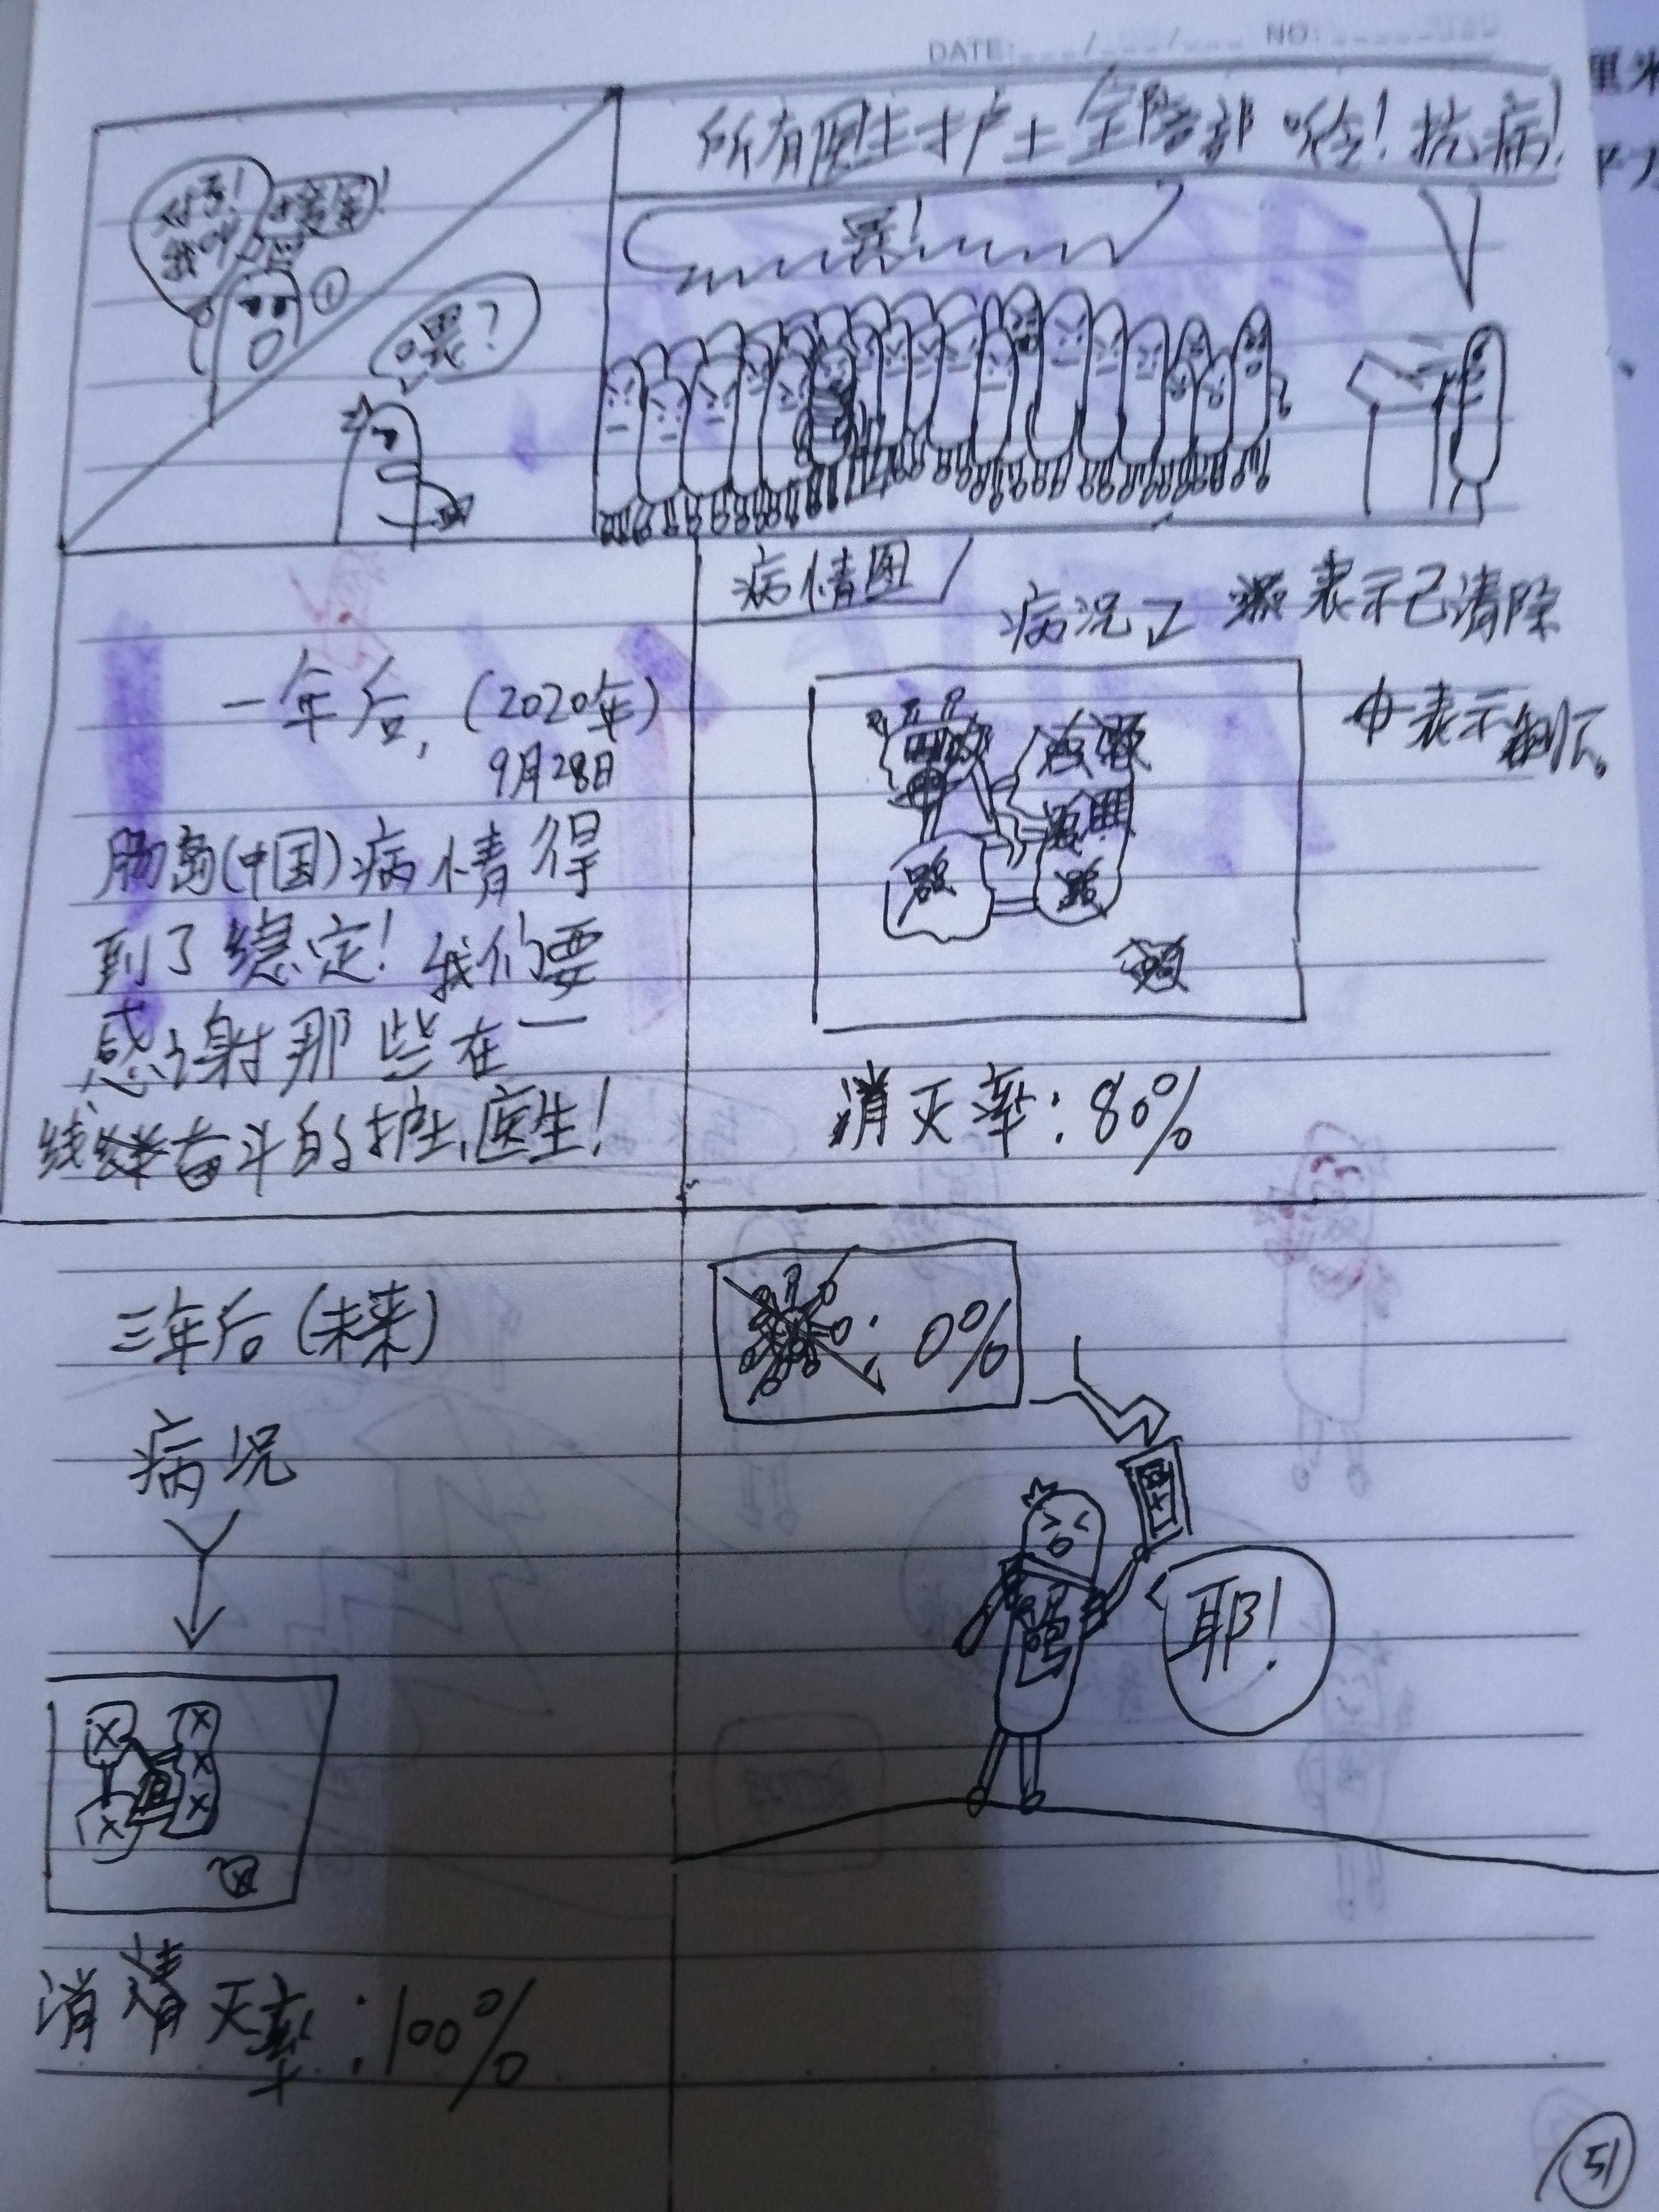 DATE: NO:
厘米
所有医生护士全部 听令！抗病！
嘿？
一年后,(2020年)
9月28日
肠岛(中国)病情得
到了稳定！我们要
感谢那些在一
线奋斗的护士、医生！
病情图
病况
表示已清除
中表示
消灭率：80%
三年后(未来)
病况
消灭率：100%
: 0%
耶！
51